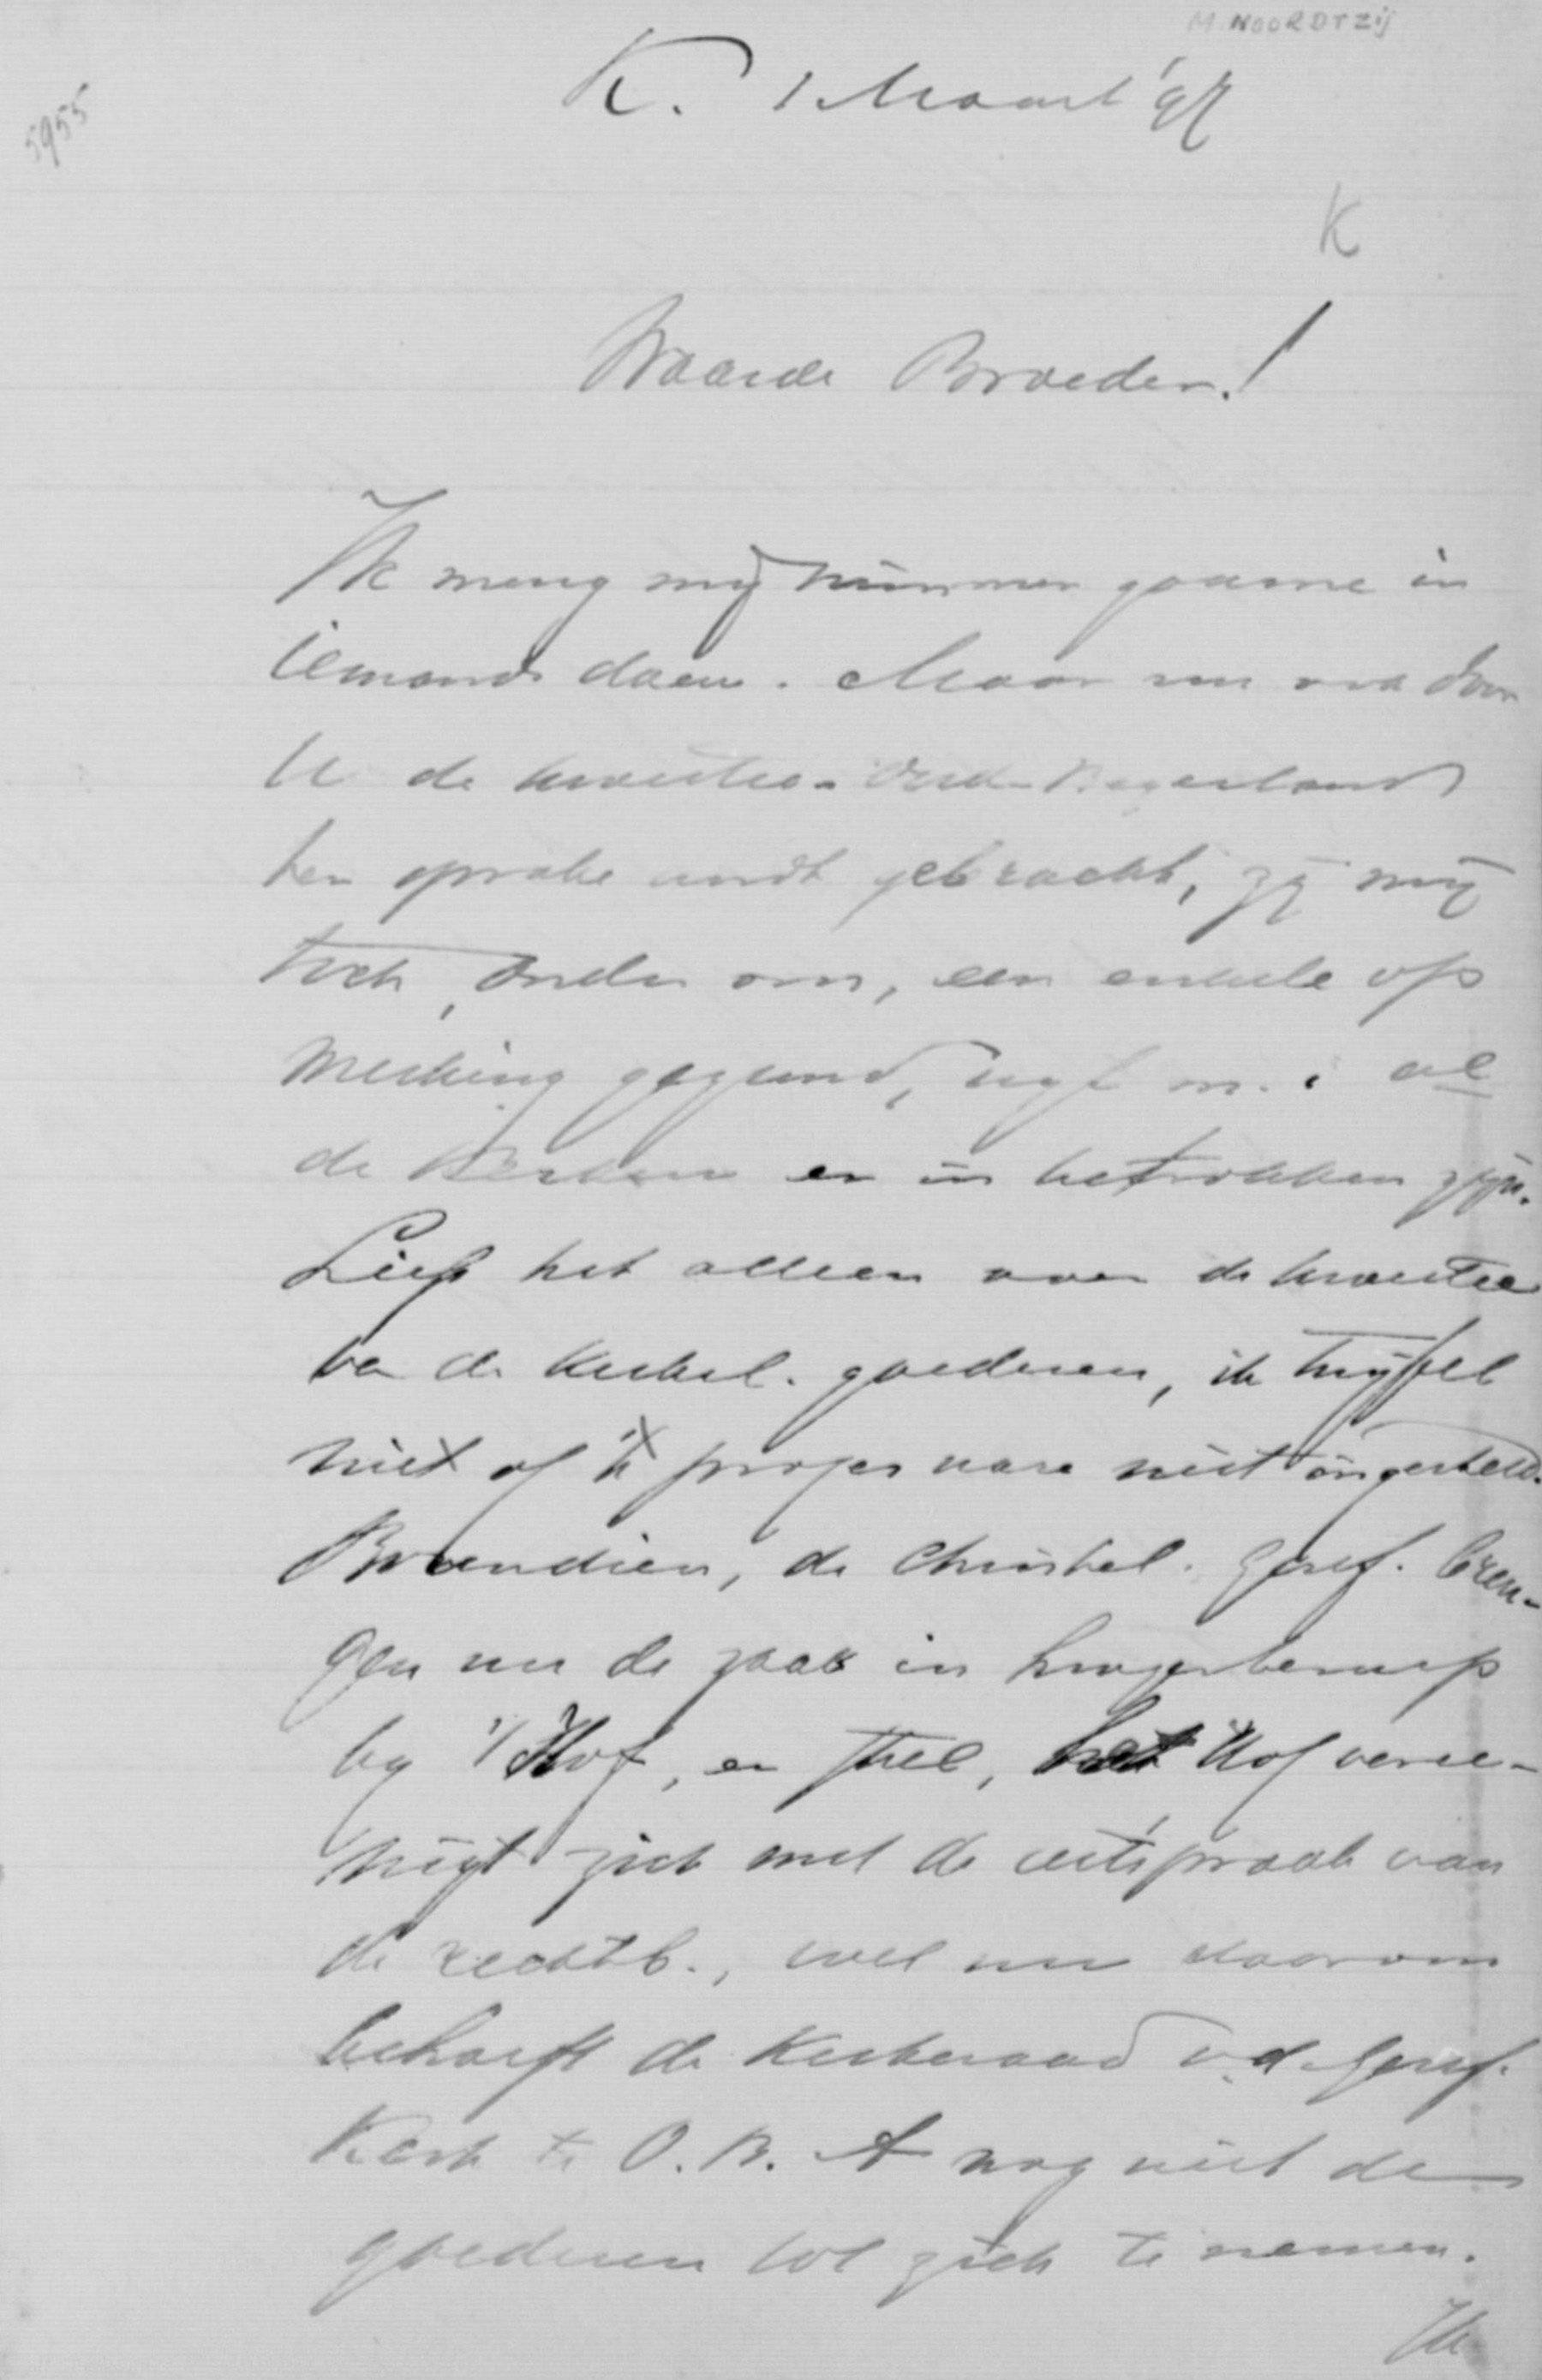 M NOORDTZIJ
5955
K. 1 Maart '97
K
Waarde Broeder!
Ik meng mij nimmer gaarne in
iemands doen. Maar nu ook door
U de kwestie-Oud-Beijerland
ter sprake wordt gebracht, zij mij
toch, onder ons, een enkele op
merking gegund, wijl m.i. al
de Kerken er in betrokken zijn.
Liep het alleen over de kwestie
van de kerkel. goederen, ik twijfel
niet of 't proces ware niet ingesteld.
Bovendien, de Christel. Geref. bren-
gen nu de zaak in hoogerberoep
by 't Hof, en stel, het Hof veree-
nigt zich met de uitspraak van
de rechtb., wel nu daarom
behoeft de Kerkeraad v.d. Geref.
Kerk te O.B. A nog niet de
goederen tot zich te nemen.
Ik